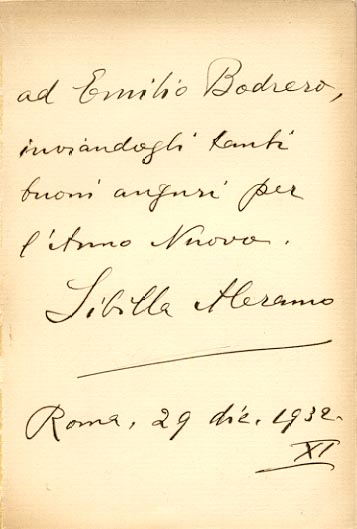 ad Emilio Bodrero,
inviandogli tanti
buoni auguri per
l'Anno Nuovo.
Sibilla Aleramo
Roma, 29 dic. 1932.
XI